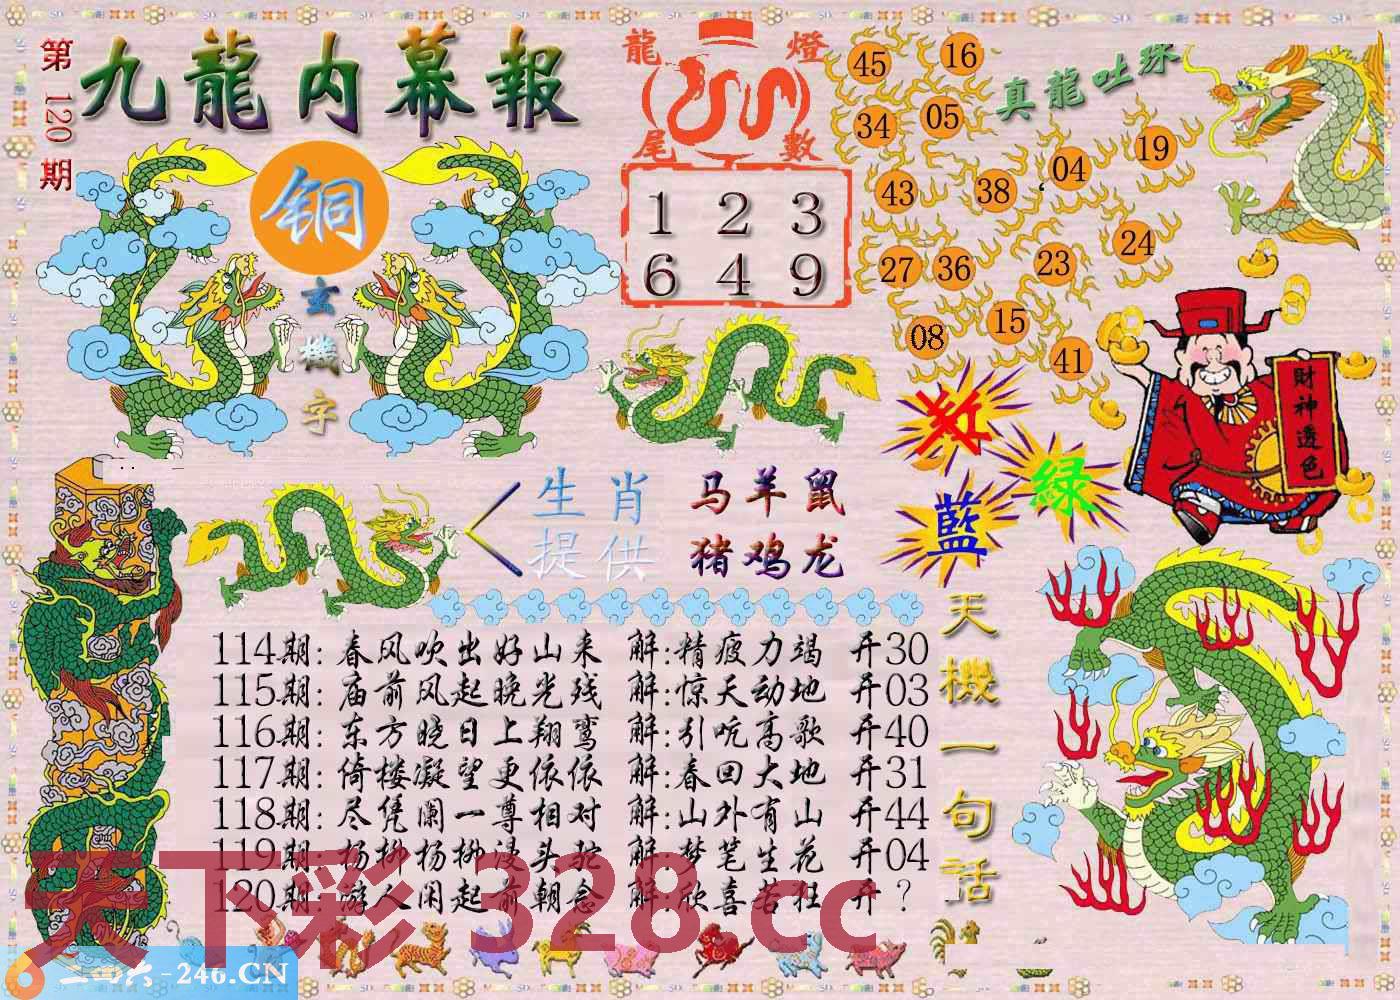 第120期
九龍内幕報
铜
玄機字
龍燈
尾數
1 2 3
6 4 9
真龍吐珠
45 16
34 05
43 38 04 19
27 36 23 24
08 15 41
財神透色
紅
绿
藍
生肖 马羊鼠
提供 猪鸡龙
天機一句話
114期: 春风吹出好山来 解:精疲力竭 开30
115期: 庙前风起晚光残 解:惊天动地 开03
116期: 东方晓日上翔鸾 解:引吭高歌 开40
117期: 倚楼凝望更依依 解:春回大地 开31
118期: 尽凭阑一尊相对 解:山外有山 开44
119期: 杨柳杨柳漫头驼 解:梦笔生花 开04
120期: 游人闲起前朝念 解:欣喜若狂 开?
天下彩 328.cc
二四六-246.CN